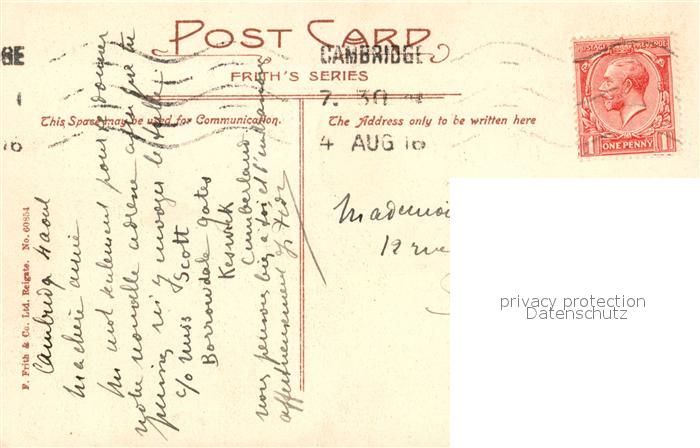 POST CARD
FRITH'S SERIES
GE
CAMBRIDGE
7. 30
4 AUG 16
16
POSTAGE REVENUE
1 ONE PENNY 1
This Space may be used for Communication.
The Address only to be written here
F. Frith & Co. Ltd., Reigate. No. 60854
Cambridge 4 aout
Ma chère amie
Un mot seulement pour donner
notre nouvelle adresse afin que tu
puisses m'y envoyer
c/o Miss Scott
Borrowdale Gates
Keswick
Cumberland
nous pensons bien à toi et
affectueusement
Mademoi
12 rue
privacy protection
Datenschutz